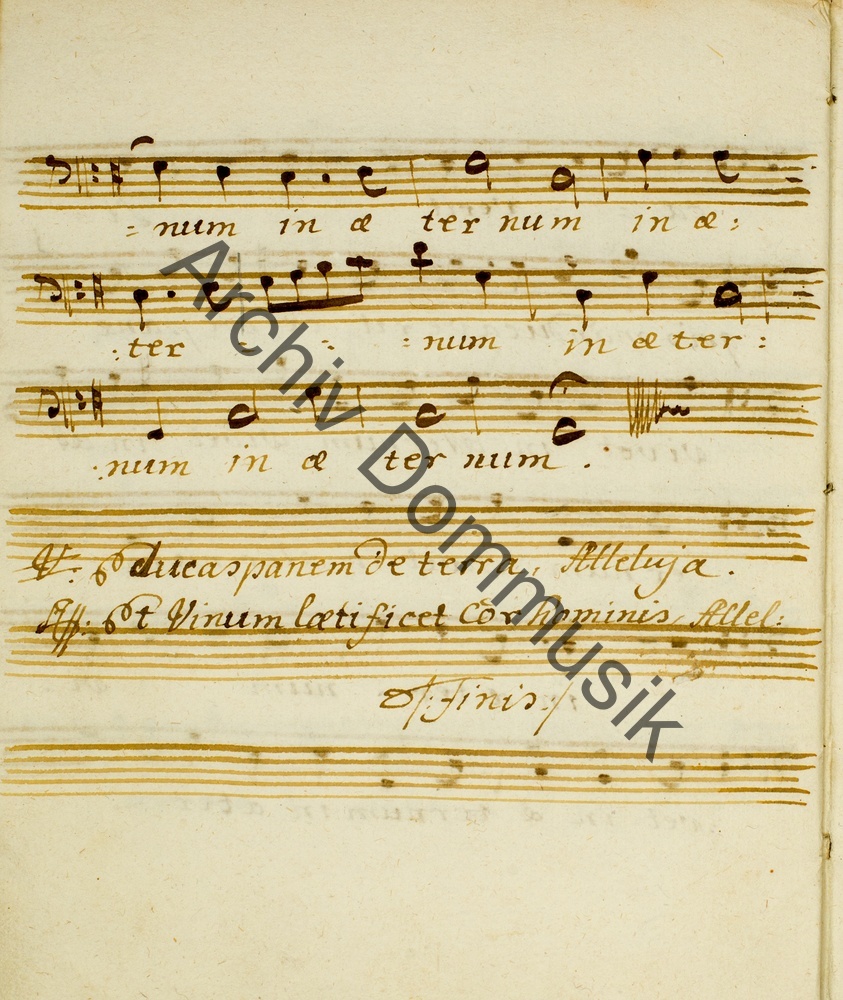 = num in æ ter num in æ :
: ter - - = num in æ ter :
: num in æ ter num .
V. Educas panem de terra, Alleluja .
Resp. Et Vinum lætificet Cor hominis, Allel:
Finis
Archiv Dommusik